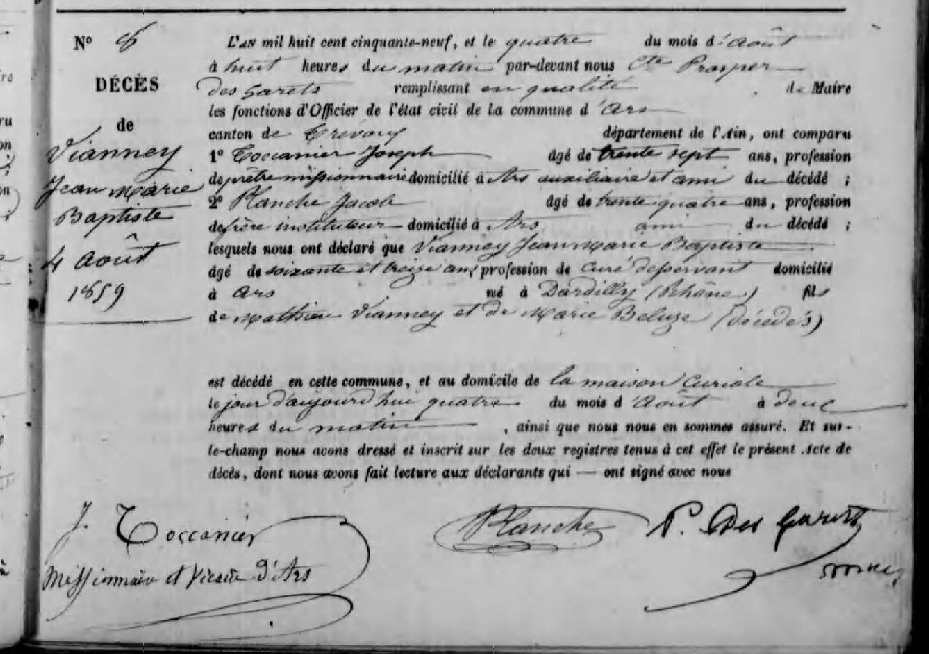 N° 8
DÉCÈS
de
Vianney
Jean Marie
Baptiste
4 août
1859
L'AN mil huit cent cinquante-neuf, et le quatre du mois d'août
à huit heures du matin par-devant nous Cte Prosper
des Garets remplissant en qualité de Maire
les fonctions d'Officier de l'état civil de la commune d'Ars
canton de Trévoux département de l'Ain, ont comparu
1° Toccanier Joseph âgé de trente sept ans, profession
de prêtre missionnaire domicilié à Ars auxiliaire et ami du décédé ;
2° Planche Jacob âgé de trente quatre ans, profession
de frère instituteur domicilié à Ars, ami du décédé ;
lesquels nous ont déclaré que Vianney Jean Marie Baptiste
âgé de soixante et treize ans profession de curé desservant domicilié
à Ars né à Dardilly (Rhône) fils
de Mathieu Vianney et de Marie Beluze (décédés)
est décédé en cette commune, et au domicile de la maison curiale
le jour d'aujourd'hui quatre du mois d'août à deux
heures du matin , ainsi que nous nous en sommes assuré. Et sur-
le-champ nous avons dressé et inscrit sur les deux registres tenus à cet effet le présent Acte de
décès, dont nous avons fait lecture aux déclarants qui — ont signé avec nous
J. Toccanier
Missionnaire et Vicaire d'Ars
Planche
P. Des Garets